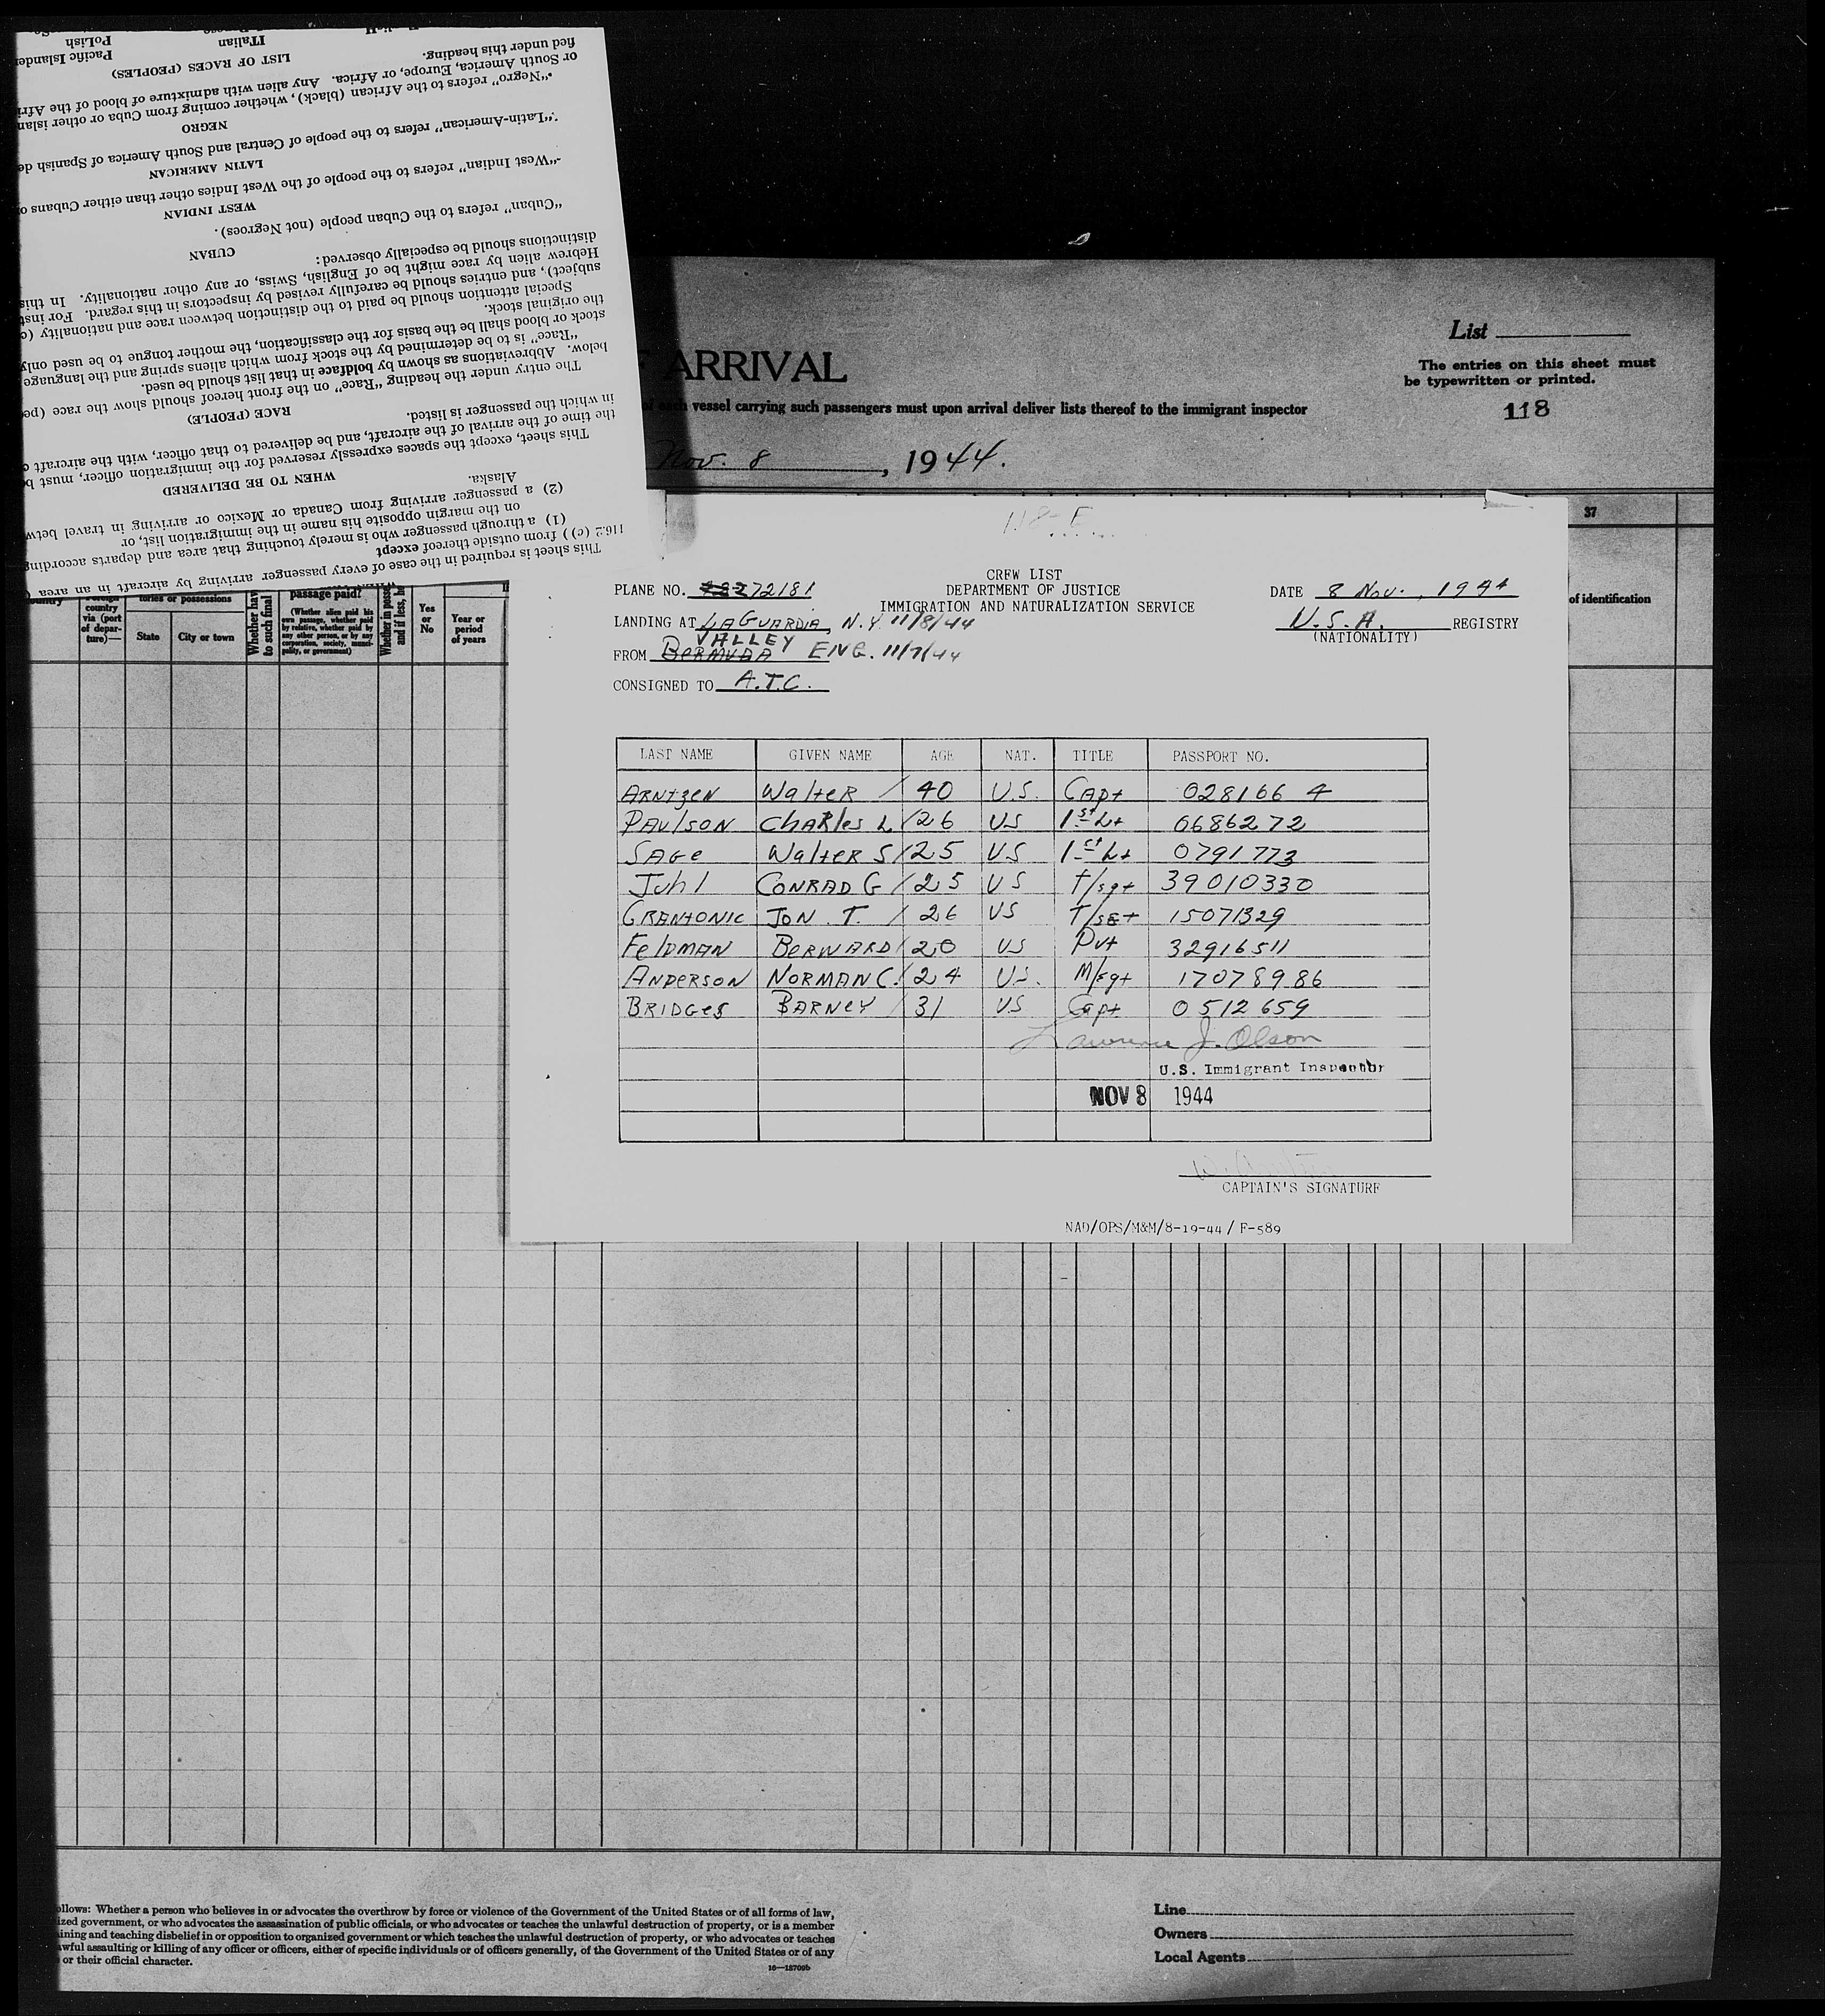 PoLish
ITalian
Pacific Islander
LIST OF RACES (PEOPLES)
fied under this heading.
or South America, Europe, or Africa. Any alien with admixture of blood of the Afri
"Negro" refers to the African (black), whether coming from Cuba or other islan
NEGRO
"Latin-American" refers to the people of Central and South America of Spanish de
LATIN AMERICAN
"West Indian" refers to the people of the West Indies other than either Cubans o
WEST INDIAN
"Cuban" refers to the Cuban people (not Negroes).
CUBAN
distinctions should be especially observed:
Hebrew alien by race might be of English, Swiss, or any other nationality. In this
subject), and entries should be carefully revised by inspectors in this regard. For inst
Special attention should be paid to the distinction between race and nationality (c
the original stock.
stock or blood shall be the basis for the classification, the mother tongue to be used only
"Race" is to be determined by the stock from which aliens spring and the language
below. Abbreviations as shown by boldface in that list should be used.
The entry under the heading "Race" on the front hereof should show the race (pe
RACE (PEOPLE)
in which the passenger is listed.
the time of the arrival of the aircraft, and be delivered to that officer, with the aircraft c
This sheet, except the spaces expressly reserved for the immigration officer, must b
WHEN TO BE DELIVERED
Alaska.
(2) a passenger arriving from Canada or Mexico or arriving in travel betw
on the margin opposite his name in the immigration list, or
(1) a through passenger who is merely touching that area and departs according
116.2 (c)) from outside thereof except
This sheet is required in the case of every passenger arriving by aircraft in an area (
List
ARRIVAL
The entries on this sheet must
be typewritten or printed.
of each vessel carrying such passengers must upon arrival deliver lists thereof to the immigrant inspector
118
Nov. 8, 1944.
37
118-E
CREW LIST
PLANE NO. 72181 DEPARTMENT OF JUSTICE DATE 8 Nov., 1944
IMMIGRATION AND NATURALIZATION SERVICE
LANDING AT LAGUARDIA, N.Y. 11/8/44 U.S.A. REGISTRY
(NATIONALITY)
VALLEY
FROM BERMUDA ENG. 11/7/44
CONSIGNED TO A.T.C.
LAST NAME GIVEN NAME AGE NAT. TITLE PASSPORT NO.
ARNTZEN WalteR / 40 U.S. CApt 0281664
PAulSON ChARles L / 26 US 1st Lt 0686272
SAGe WalteR S / 25 US 1st Lt 0791773
Juhl CONRAD G / 25 US T/sgt 39010330
GRANTONIC JON T. / 26 US T/SGT 15071329
FelDMAN BERNARD / 20 US Pvt 32916511
ANDERSON NORMAN C. / 24 U.S. M/sgt 17078986
BRIDGes BARNEY / 31 US Capt 0512659
Lawrence J. Olson
U.S. Immigrant Inspector
NOV 8 1944
CAPTAIN'S SIGNATURE
NAD/OPS/M&M/8-19-44 / F-589
country
Foreign
country
via (port
of depar-
ture)—
tories or possessions
State
City or town
Whether hav
to such final
passage paid?
(Whether alien paid his
own passage, whether paid
by relative, whether paid by
any other person, or by any
corporation, society, munici-
pality, or government)
Whether in posse
and if less, ho
Yes
or
No
Year or
period
of years
of identification
ollows: Whether a person who believes in or advocates the overthrow by force or violence of the Government of the United States or of all forms of law,
ized government, or who advocates the assassination of public officials, or who advocates or teaches the unlawful destruction of property, or is a member
ining and teaching disbelief in or opposition to organized government or which teaches the unlawful destruction of property, or who advocates or teaches
awful assaulting or killing of any officer or officers, either of specific individuals or of officers generally, of the Government of the United States or of any
or their official character.
16—18709b
Line
Owners
Local Agents